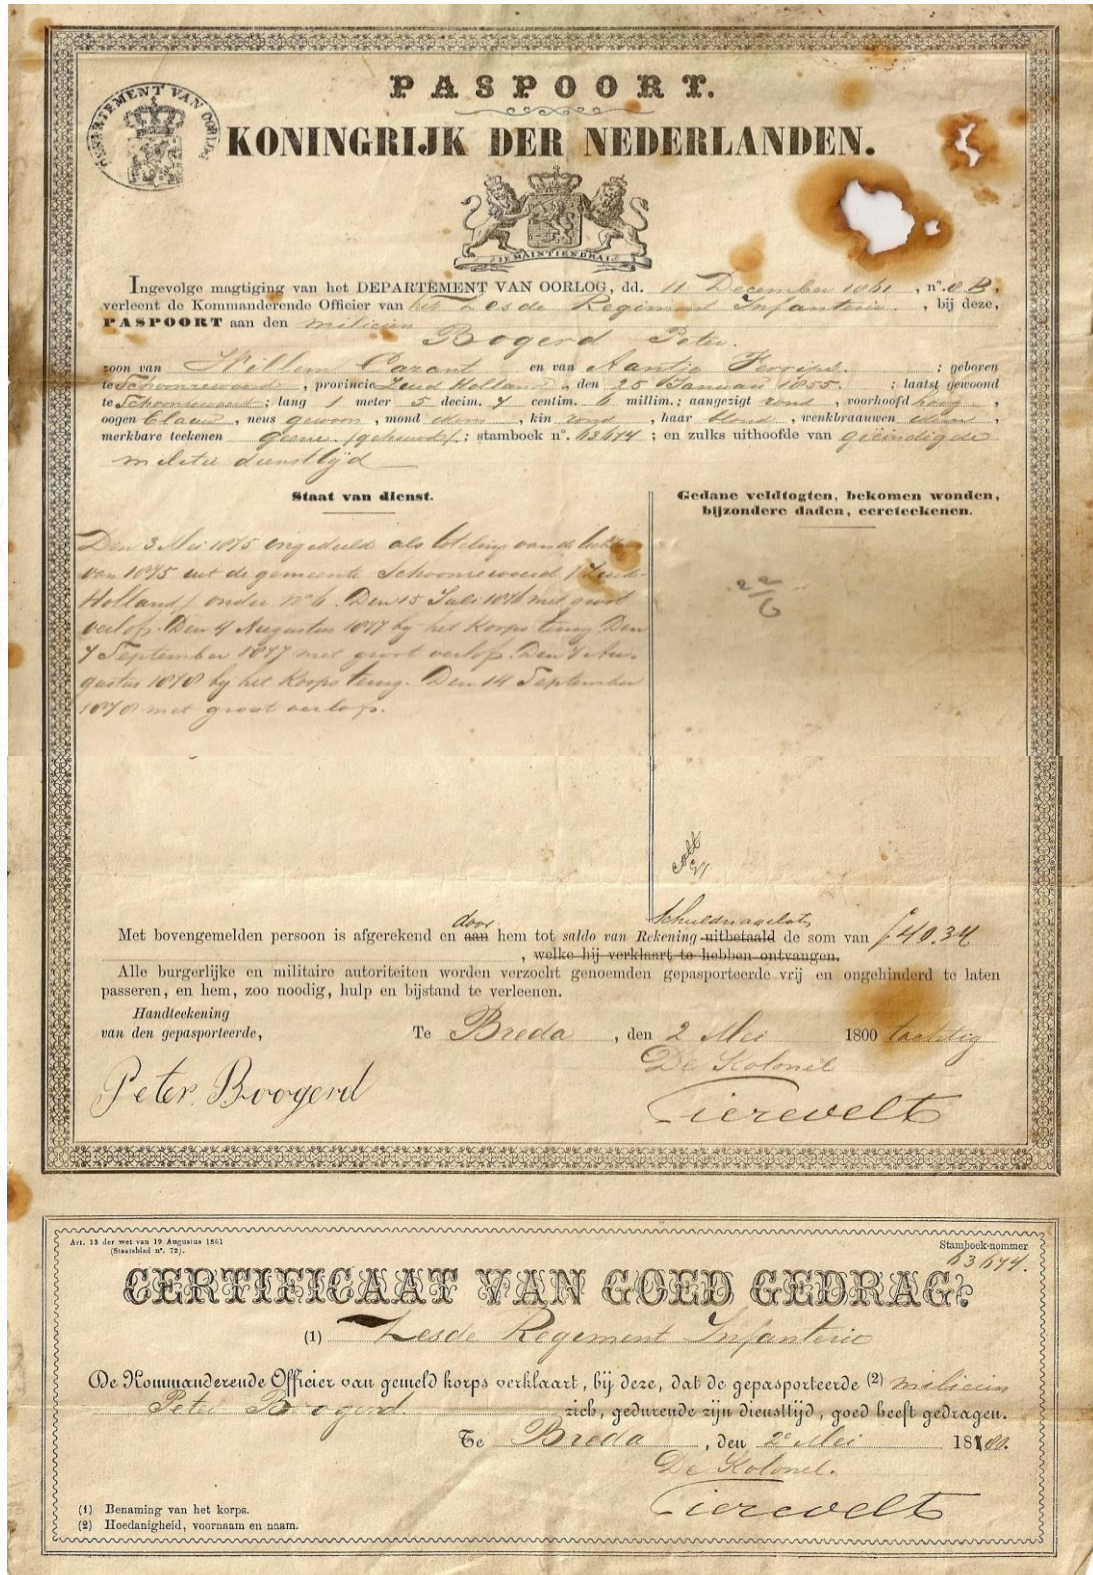 DEPARTEMENT VAN OORLOG
PASPOORT.
KONINGRIJK DER NEDERLANDEN.
JE MAINTIENDRAI
Ingevolge magtiging van het DEPARTEMENT VAN OORLOG, dd. 11 December 1861, n°. 8B,
verleent de Kommanderende Officier van het Zesde Regiment Infanterie, bij deze,
PASPOORT aan den milicien
Bogerd Peter.
zoon van Willem Carant en van Aantje ; geboren
te Schoonrewoerd, provincie Zuid Holland, den 25 Januari 1855. ; laatst gewoond
te Schoonrewoerd ; lang 1 meter 5 decim. 7 centim. 6 millim.; aangezigt rond, voorhoofd hoog,
oogen blauw, neus gewoon, mond idem, kin rond, haar blond, wenkbraauwen idem,
merkbare teekenen geene. ; stamboek n°. 63674 ; en zulks uithoofde van geëindigde
militie diensttijd
Staat van dienst.
Gedane veldtogten, bekomen wonden,
bijzondere daden, eereteekenen.
Den 3 Mei 1875 ingedeeld als loteling van de
van 1875 uit de gemeente Schoonrewoerd (Zuid-
Holland) onder n° 6. Den 15 Juli 1876 met groot
verlof. Den 4 Augustus 1877 bij het Korps terug. Den
7 September 1877 met groot verlof. Den 7 Au-
gustus 1878 bij het Korps terug. Den 14 September
1878 met groot verlof.
door Schuldnagelaten
Met bovengemelden persoon is afgerekend en aan hem tot saldo van Rekening uitbetaald de som van f 40.34
, welke hij verklaart te hebben ontvangen.
Alle burgerlijke en militaire autoriteiten worden verzocht genoemden gepasporteerde vrij en ongehinderd te laten
passeren, en hem, zoo noodig, hulp en bijstand te verleenen.
Handteekening
van den gepasporteerde,
Te Breda, den 2 Mei 1800 tachtig
De Kolonel
Peter Boogerd
Tierevelt
Art. 13 der wet van 19 Augustus 1861
(Staatsblad n°. 72).
Stamboek-nommer
63674.
CERTIFICAAT VAN GOED GEDRAG.
(1) Zesde Regiment Infanterie
De Kommanderende Officier van gemeld korps verklaart, bij deze, dat de gepasporteerde (2) milicien
Peter Boogerd zich, gedurende zijn diensttijd, goed heeft gedragen.
Te Breda, den 2e Mei 1880.
De Kolonel.
Tierevelt
(1) Benaming van het korps.
(2) Hoedanigheid, voornaam en naam.